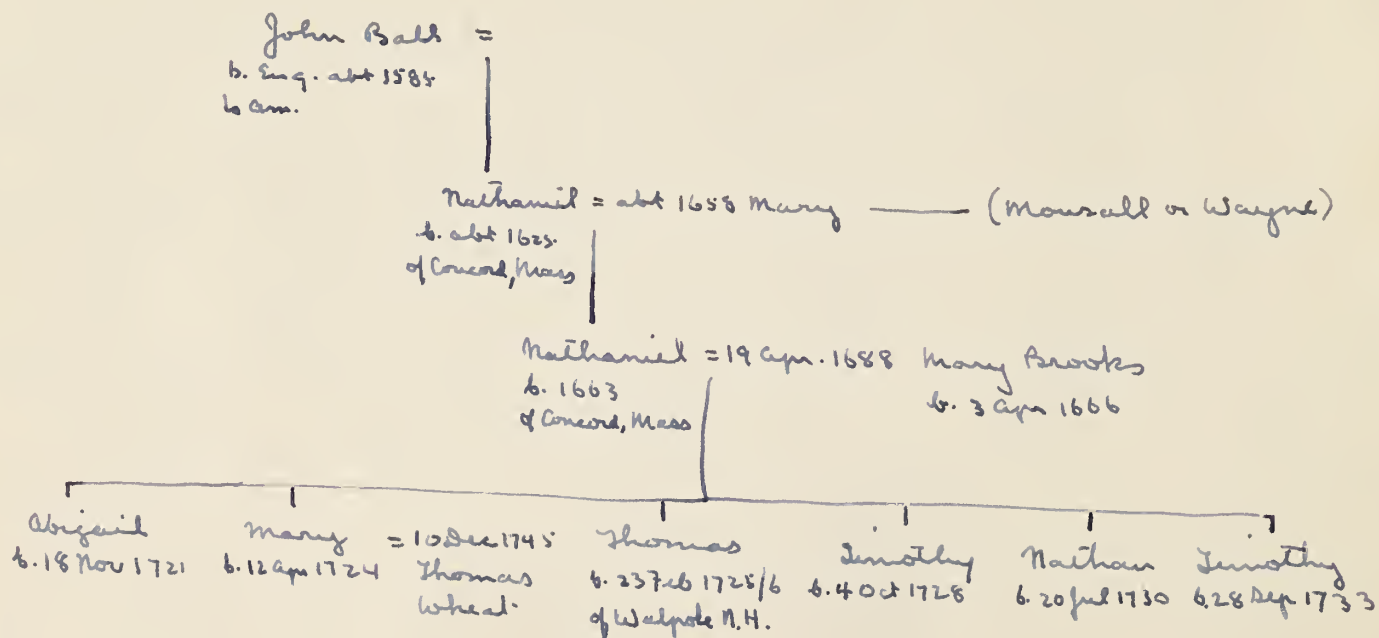 John Ball =
b. Eng. abt 1585
to Am.
Nathaniel = abt 1658 Mary —— (Mousall or Wayne)
b. abt 1625
of Concord, Mass
Nathaniel = 19 Apr. 1688 Mary Brooks
b. 1663
b. 3 Apr 1666
of Concord, Mass
Abigail
b. 18 Nov 1721
Mary = 10 Dec 1745
b. 12 Apr 1724
Thomas
Wheat
Thomas
b. 23 Feb 1725/6
of Walpole N.H.
Timothy
b. 4 Oct 1728
Nathan
b. 20 Jul 1730
Timothy
b. 28 Sep 1733